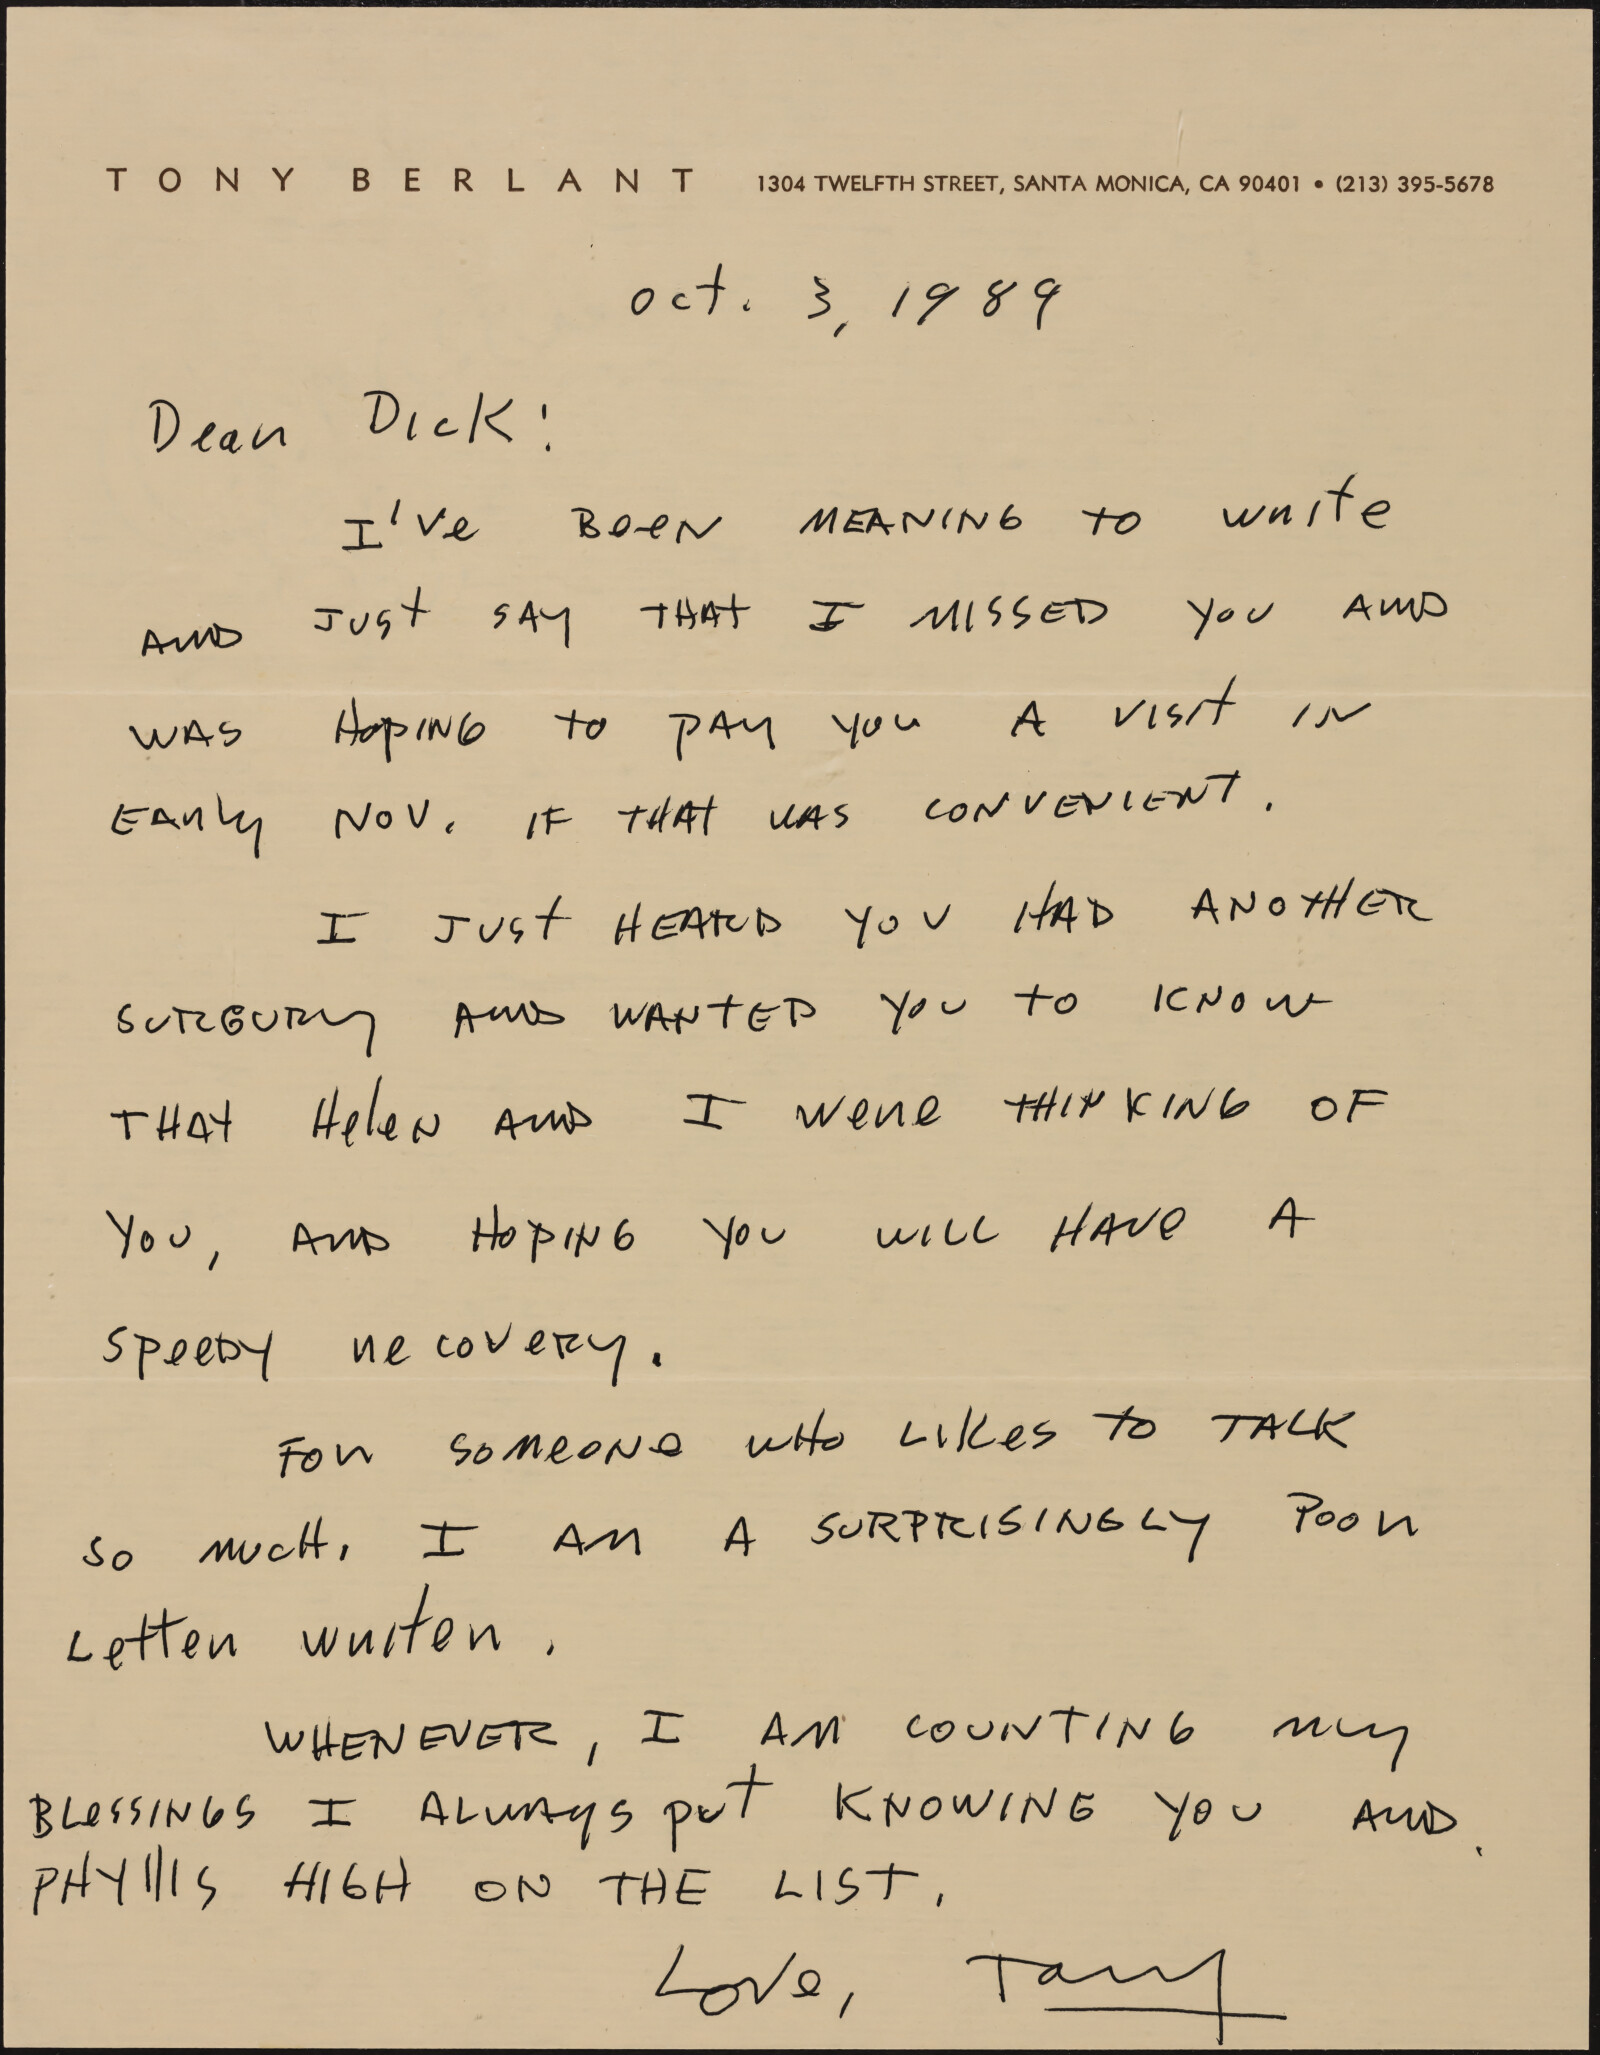 TONY BERLANT 1304 TWELFTH STREET, SANTA MONICA, CA 90401 • (213) 395-5678
Oct. 3, 1989
Dear Dick:
I've Been MEANING TO write
AND JUST SAY THAT I MISSED YOU AND
WAS HOPING TO PAY YOU A VISIT IN
EARLY NOV. IF THAT WAS CONVENIENT.
I JUST HEARD YOU HAD ANOTHER
SURGURY AND WANTED YOU TO KNOW
THAT Helen AND I were THINKING OF
YOU, AND HOPING YOU WILL HAVE A
SPEEDY recovery.
FOR SOMEONE WHO LIKES TO TALK
SO MUCH, I AM A SURPRISINGLY POOR
Letter writer.
WHENEVER, I AM COUNTING MY
BLESSINGS I ALWAYS put KNOWING YOU AND
PHYLLIS HIGH ON THE LIST.
Love, Tony